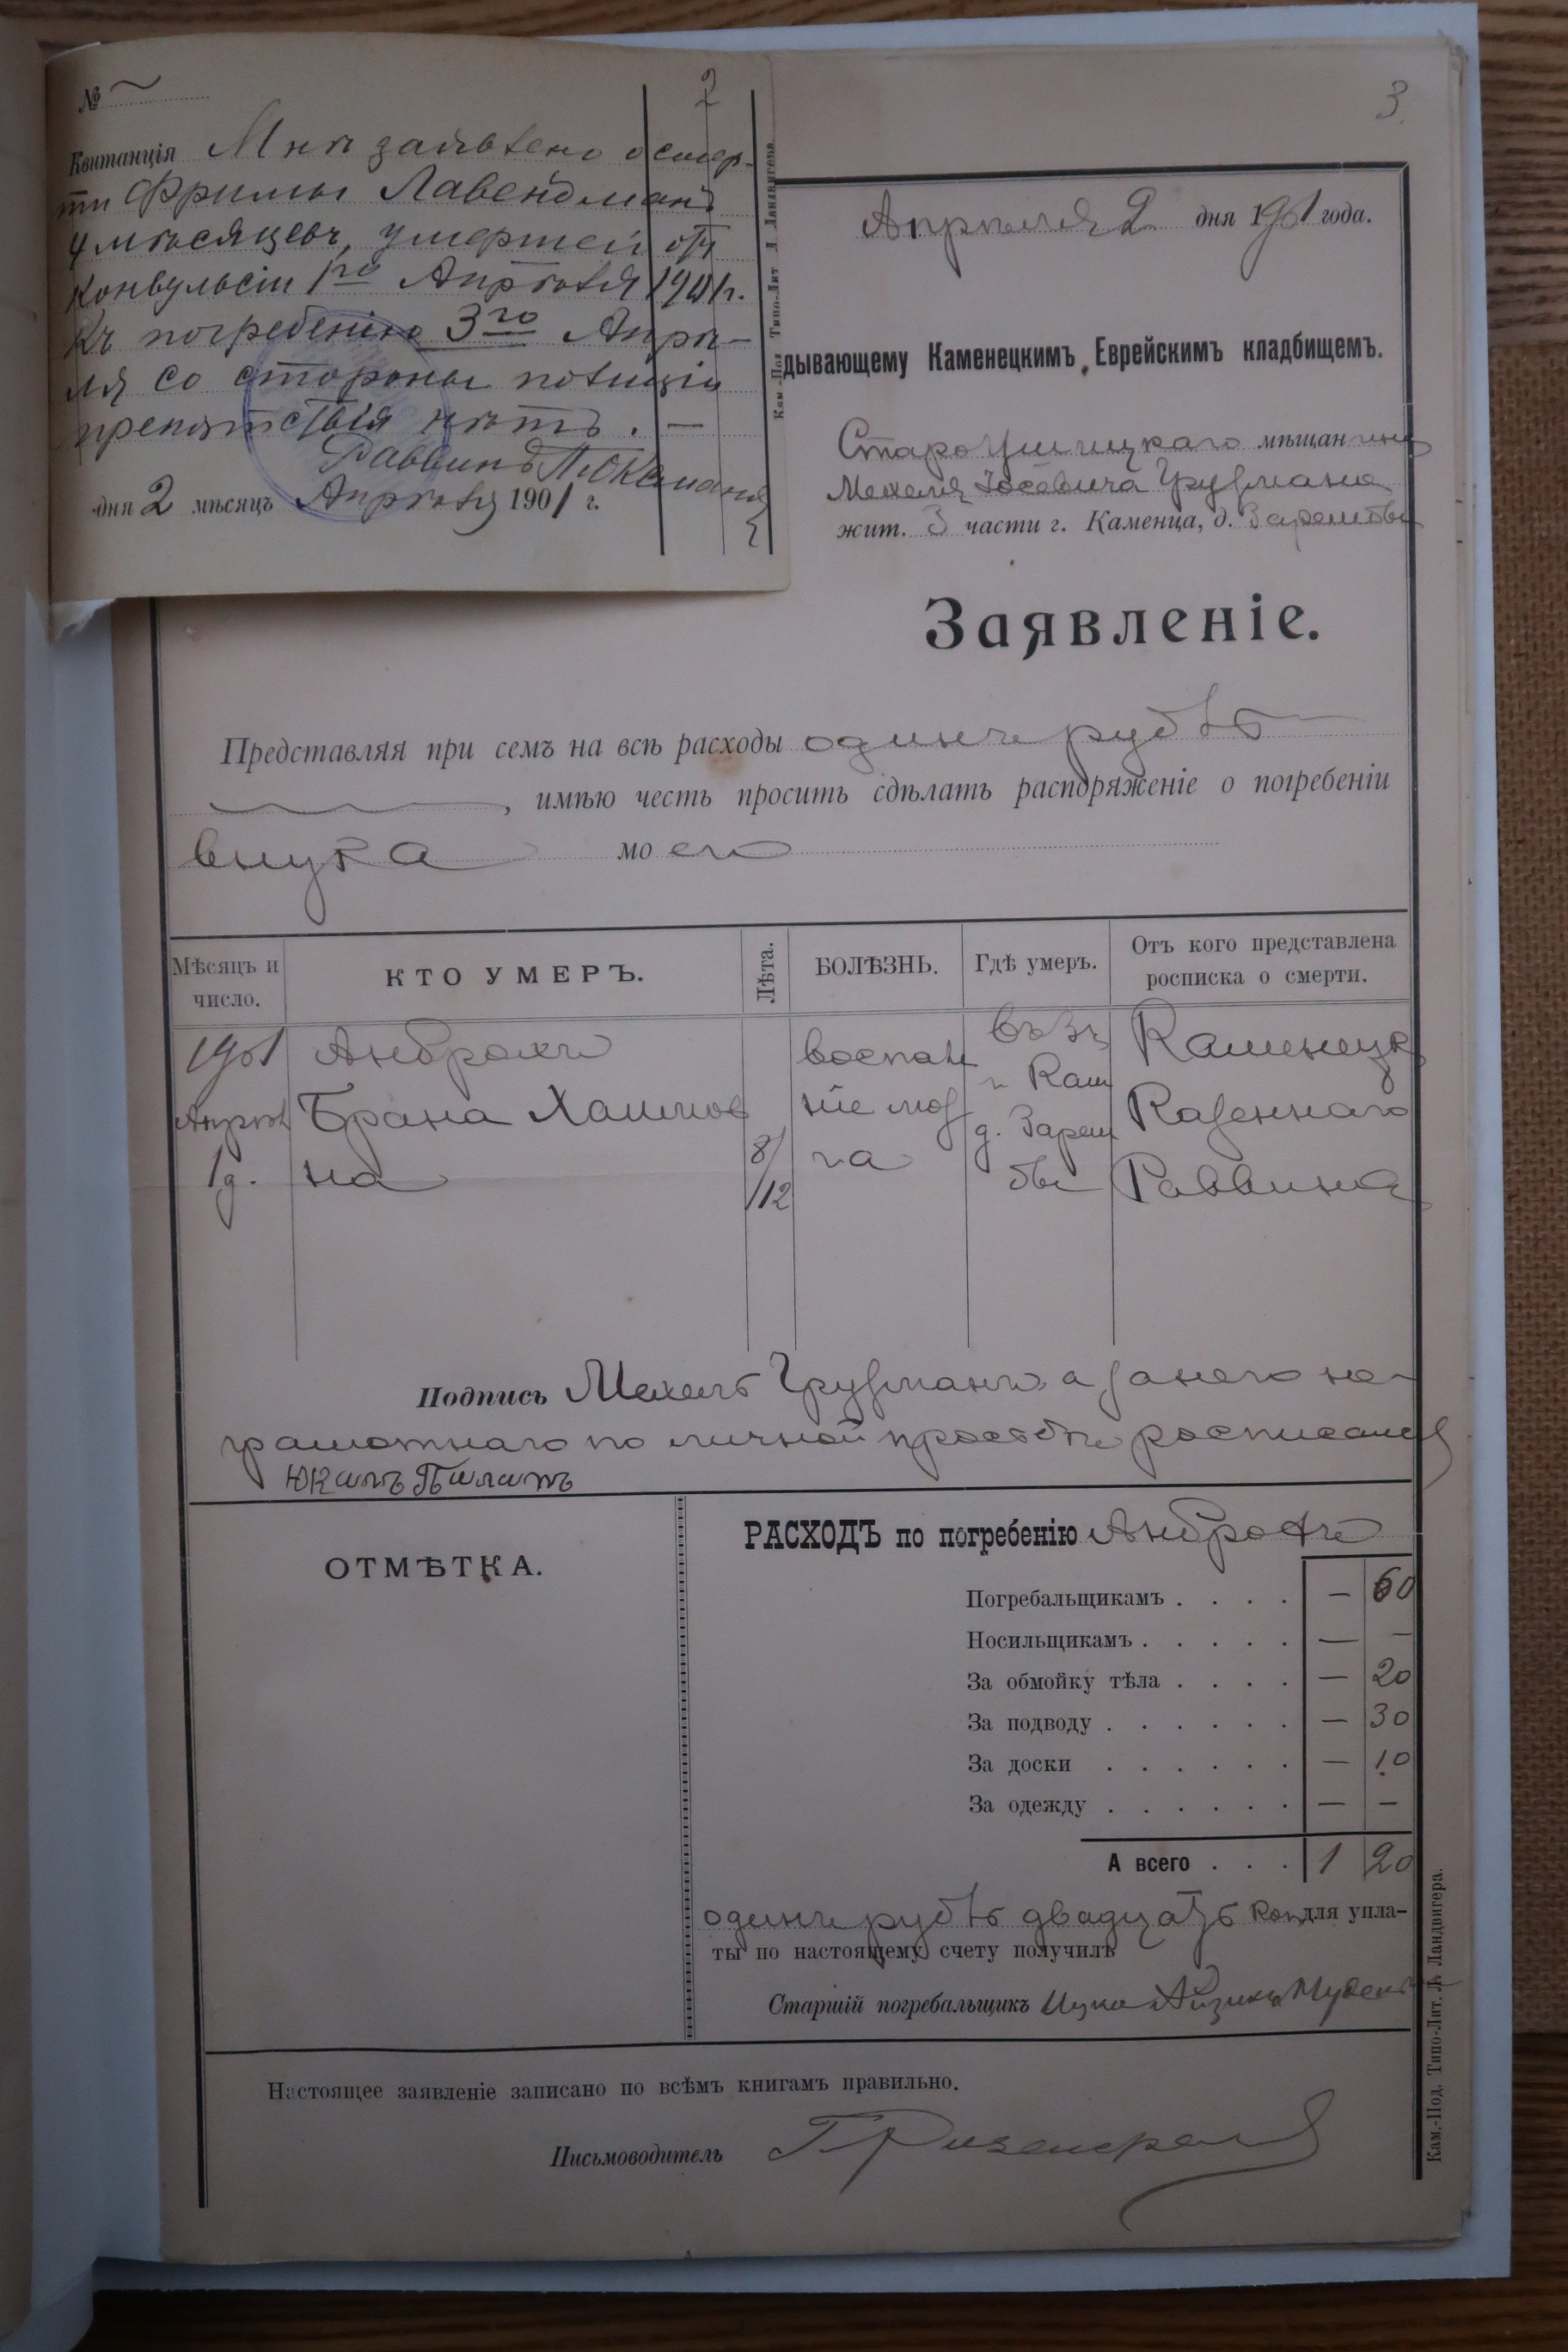 №
2
Квитанція Мнѣ заявлено о смер-
ти Фримы Лавендманъ
4 мѣсяцевъ, умершей отъ
конвульсіи 1го Апрѣля 1901 г.
Къ погребенію 3го Апрѣ-
ля со стороны полиціи
препятствія нѣтъ. —
Раввинъ
дня 2 мѣсяцъ Апрѣля 1901 г.
Кам.-Под. Типо-Лит. Л. Ландвигера.
3
Апрѣля 2 дня 1901 года.
дывающему Каменецкимъ Еврейскимъ кладбищемъ.
Староушицкаго мѣщанина
Мехеля Іосевича Грузмана
жит. 3 части г. Каменца, д.
Заявленіе.
Представляя при семъ на всѣ расходы одинъ рубль
, имѣю честь просить сдѣлать распоряженіе о погребеніи
внука моего
Мѣсяцъ и число.
КТО УМЕРЪ.
Лѣта.
БОЛѢЗНЬ.
Гдѣ умеръ.
Отъ кого представлена росписка о смерти.
1901
Апрѣл
1 д.
Хаимов
на
8/12
воспале
ніе моз
га
въ 3 ч
г. Кам
Каменецк
Казеннаго
Раввина
Подпись Мехель Грузманъ, а за него не-
грамотнаго по личной просьбѣ росписался
РАСХОДЪ по погребенію
ОТМѢТКА.
Погребальщикамъ . . . . — 60
Носильщикамъ . . . . . — —
За обмойку тѣла . . . . — 20
За подводу . . . . . . — 30
За доски . . . . . . — 10
За одежду . . . . . . — —
А всего . . . 1 20
одинъ рубль двадцать коп для упла-
ты по настоящему счету получилъ
Старшій погребальщикъ
Настоящее заявленіе записано по всѣмъ книгамъ правильно.
Письмоводитель
Кам.-Под. Типо-Лит. Л. Ландвигера.